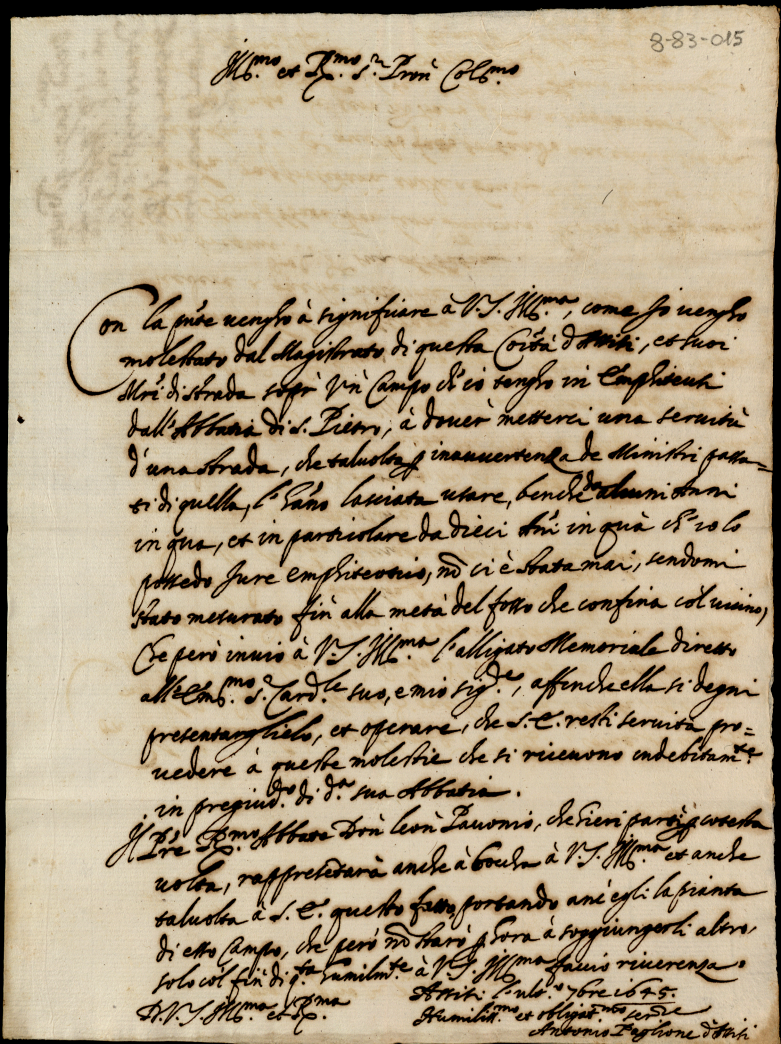 8-83-015
Ill.mo et R.mo S.r Pron Col.mo
Con la pnte vengho à significare à V.S. Ill.ma, come Io vengho
molestato dal Magistrato di questa Città d'Assisi, et suoi
Mri di strada sopr' un Campo ch'io tengho in Emphiteusi
dall'Abbatia di S. Pietro, à dover metterci una servitù
d'una strada, che talvolta p inauuertenza de Ministri passa=
ti di quella, l'hano lasciata usare, benche da alcuni Anni
in qua, et in particolare da dieci Ani in quà ch'io lo
possedo Jure emphiteotico, nõ ci è stata mai, sendomi
stato mesurato fin alla metà del fosso che confina col vicino,
Che però invio à V.S. Ill.ma l'alligato Memoriale diretto
all'Em.mo S.r Card.le suo, e mio sig.re, affinche ella si degni
presentarglielo, et operare, che S.E. resti servita pro=
vedere à queste molestie che si ricevono indebitam.te
in pregiud.o di d.a sua Abbatia.
Il Pre R.mo Abbate Don Leon Pavonio, che hieri partì p cotesta
volta, rappresẽtarà anche à bocha à V.S. Ill.ma et anche
talvolta à S.E. questo fatto, portando anc'egli la pianta
di esso Campo, che però nõ starò p hora à soggiungerli altro,
solo col fin di q.ta humilm.te à V.S. Ill.ma faccio riverenza.
Assisi l'ult.o 7bre 1645.
D. V.S. Ill.ma et R.ma
Humiliss.mo et obligat.mo ser.re
Antonio Paglione d'Assisi